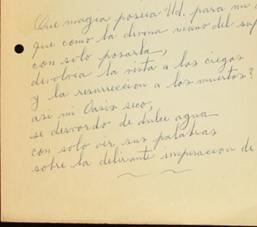 Que magia poseia Ud. para mi
que como la divina mano del
con solo posarla,
devolvia la vista a los ciegos
y la resurreccion a los muertos?
asi mi Oasis seco,
se desbordo de dulce agua
con solo ver sus palabras
sobre la delirante inspiracion de